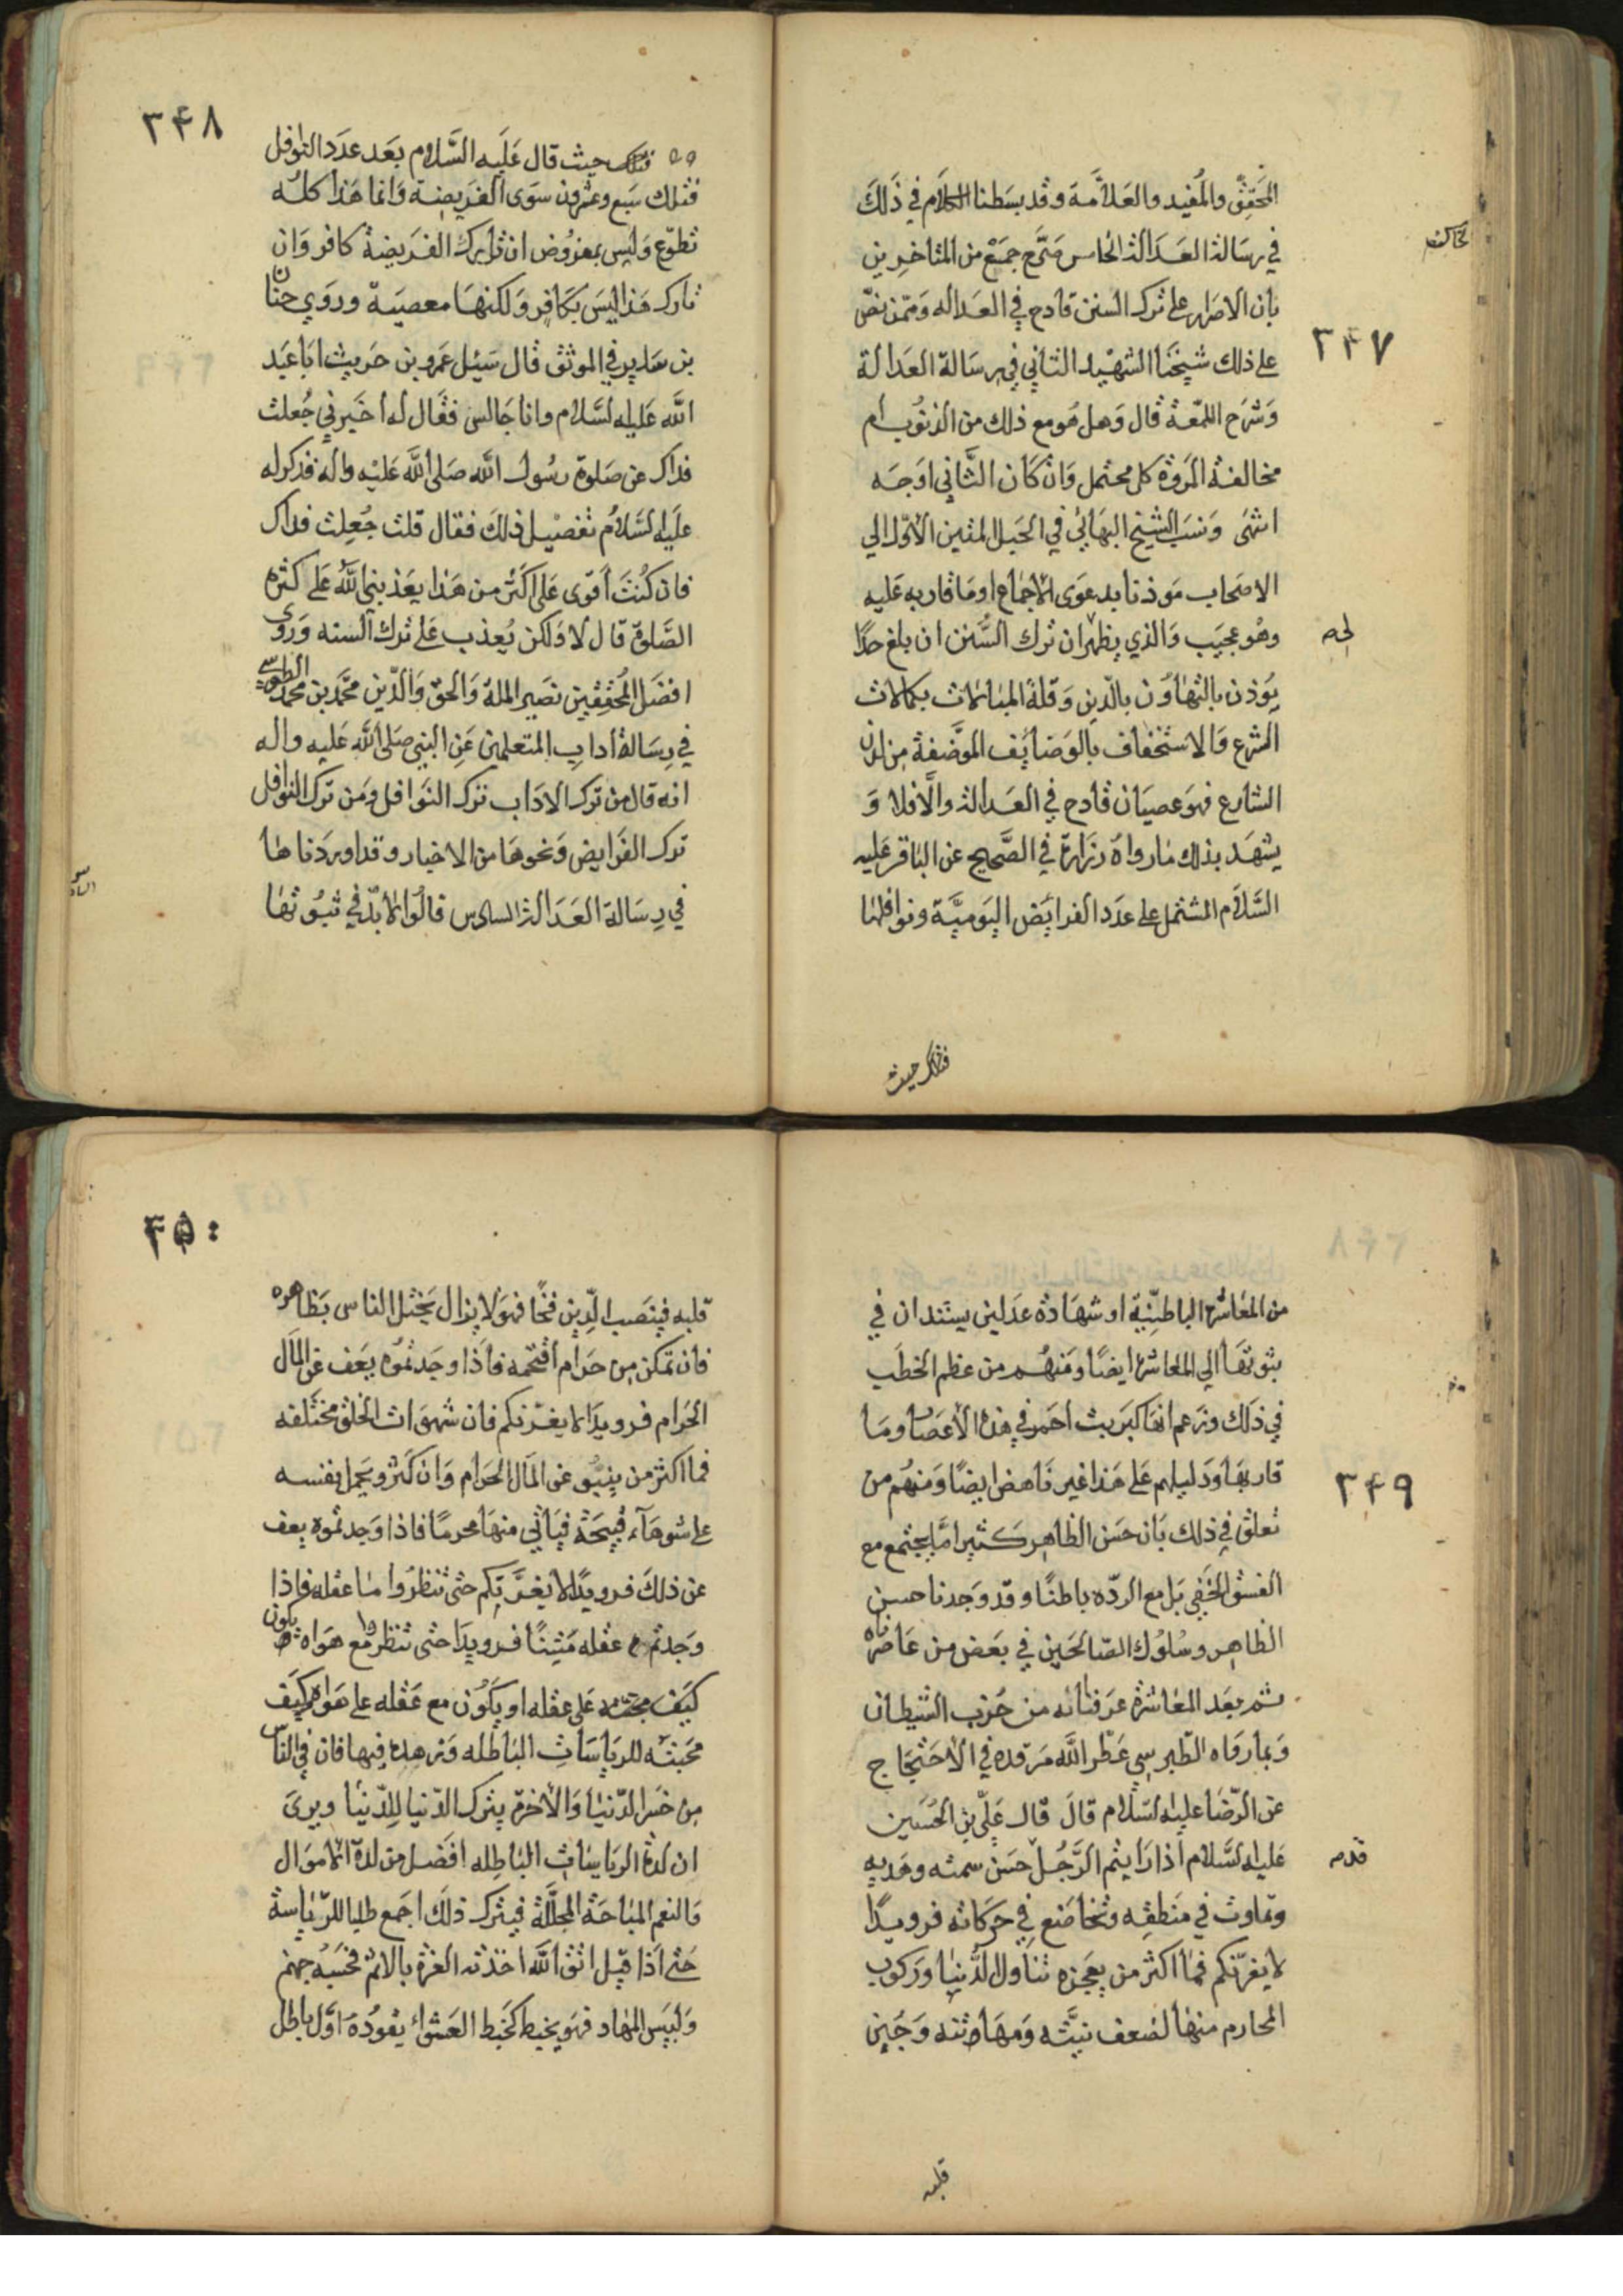 المحقق والمفيد والعلامة وقد بسطنا الكلام في ذلك
في رسالة العدالة الخامس صرّح جمع من المتاخرين
بان الاصرار على ترك السنن قادح في العدالة وممن نصّ
٣۴٧
على ذلك شيخنا الشهيد الثاني في رسالة العدالة
وشرح اللمعة قال وهل هو مع ذلك من الذنوب ام
مخالفة المروة كل محتمل وان كان الثاني اوجه
انتهى ونسب الشيخ البهائي في الحبل المتين الاول الي
الاصحاب موذنا بدعوى الاجماع او ما قاربه عليه
وهو عجيب والذي يظهر ان ترك السنن ان بلغ حدا
يوذن بالتهاون بالدين وقلة المبالات بكمالات
الشرع والاستخفاف بالوضائف الموضفة من لدن
الشارع فهو عصيان قادح في العدالة والا فلا و
يشهد بذلك ما رواه زرارة في الصحيح عن الباقر عليه
السلام المشتمل على عدد الفرايض اليومية ونوافلها
فتلك حيث
٣۴٨
فتلك حيث قال عليه السلام بعد عدد النوافل
فتلك سبع وعشرون سوى الفريضة وانما هذا كله
تطوع وليس بمفروض ان تارك الفريضة كافر وان
تارك هذا ليس بكافر ولكنها معصية وروي حنان
بن سدير في الموثق قال سئل عمرو بن حريث ابا عبد
الله عليه السلام وانا جالس فقال له اخبرني جعلت
فداك عن صلوة رسول الله صلى الله عليه واله فذكر له
عليه السلام تفصيل ذلك فقال قلت جعلت فداك
فان كنت اقوى على اكثر من هذا يعذبني الله على كثره
الصلوة قال لا ولكن يعذب على ترك السنه وروى
افضل المحققين نصير الملة والحق والدين محمد بن محمد الطوسي
في رسالة اداب المتعلمين عن النبي صلى الله عليه واله
انه قال من ترك الاداب ترك النوافل ومن ترك النوافل
ترك الفرايض ونحوها من الاخبار وقد اوردناها
في رسالة العدالة السادس قالوا لا بد في ثبوتها
من المعاشرة الباطنية او شهادة عدلين يستندان في
ثبوتها الي المعاشرة ايضا ومنهم من عظم الخطب
في ذلك وزعم انها كبريت احمر في هذه الاعصار وما
٣۴٩
قاربها ودليلهم على هذا غير ناهض ايضا ومنهم من
تعلق في ذلك بان حسن الظاهر كثيرا ما يجتمع مع
الفسق الخفي بل مع الرده باطنا وقد وجدنا حسن
الظاهر وسلوك الصالحين في بعض من عاصرناه
ثم بعد المعاشرة عرفنا انه من حزب الشيطان
وبما رواه الطبرسي عطر الله مرقده في الاحتجاج
عن الرضا عليه السلام قال قال علي بن الحسين
عليه السلام اذا رايتم الرجل حسن سمته وهديه
وتماوت في منطقه وتخاضع في حركاته فرويدا
لا يغرنكم فما اكثر من يعجزه تناول الدنيا وركوب
المحارم منها لضعف نيته ومهانته وجبن
قلبه
۴۵۰
قلبه فينصب الدين فخا فهو لا يزال يختل الناس بظاهره
فان تمكن من حرام اقتحمه فاذا وجدتموه يعف عن المال
الحرام فرويدا لا يغرنكم فان شهوات الخلق مختلفه
فما اكثر من ينبو عن المال الحرام وان كثر ويحمل نفسه
على شوهاء قبيحة فياتي منها محرما فاذا وجدتموه يعف
عن ذلك فرويدا لا يغرنكم حتى تنظروا ما عقله فاذا
وجدتم عقله متينا فرويدا حتى تنظروا مع هواه يكون
كيف محبته على عقله او يكون مع عقله على هواه وكيف
محبته للرياسات الباطله وزهده فيها فان في الناس
من خسر الدنيا والاخرة يترك الدنيا للدنيا ويرى
ان لذة الرياسات الباطله افضل من لذة الاموال
والنعم المباحة المحللة فيترك ذلك اجمع طلبا للرياسة
حتى اذا قيل له اتق الله اخذته العزة بالاثم فحسبه جهنم
ولبيس المهاد فهو يخبط كخبط العشواء يقوده اول باطل